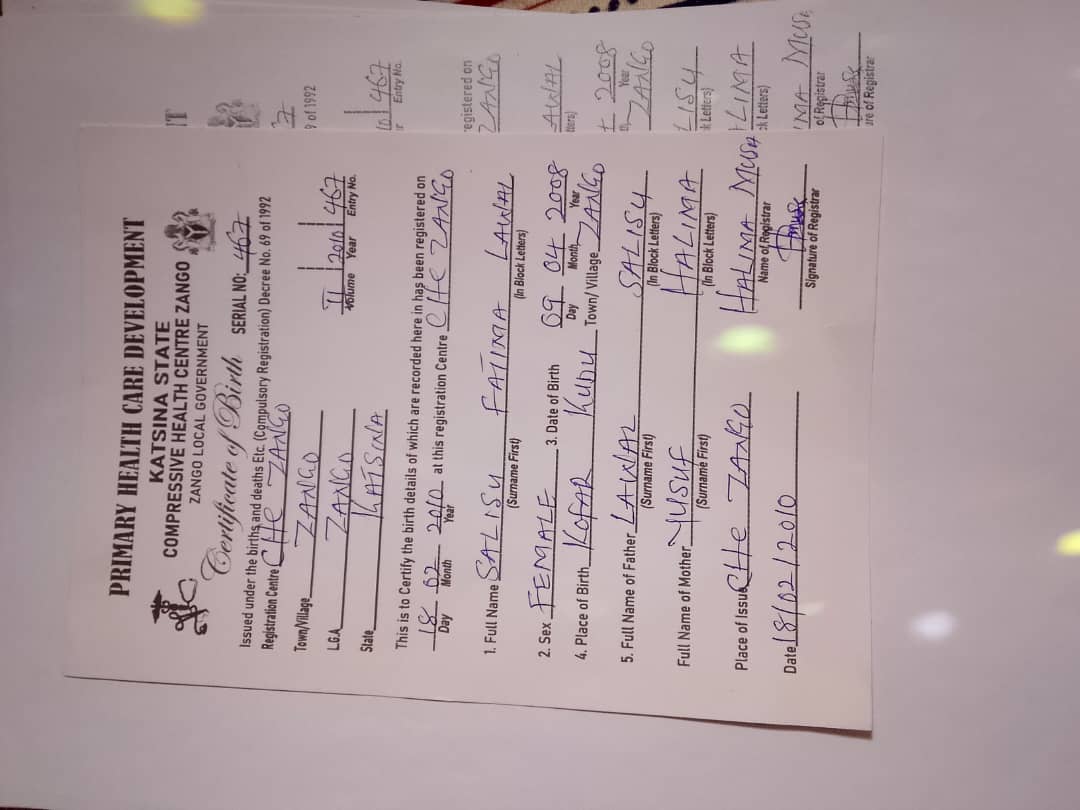 PRIMARY HEALTH CARE DEVELOPMENT
KATSINA STATE
COMPRESSIVE HEALTH CENTRE ZANGO
ZANGO LOCAL GOVERNMENT
Certificate of Birth SERIAL NO: 467
Issued under the births and deaths Etc. (Compulsory Registration) Decree No. 69 of 1992
Registration Centre CHC ZANGO
Town/Village ZANGO
L.G.A ZANGO II 2010 467
Volume Year Entry No.
State KATSINA
This is to Certify the birth details of which are recorded here in has been registered on
18 02 2010 at this registration Centre CHC ZANGO
Day Month Year
1. Full Name SALISU FATIMA LAWAL
(Surname First) (In Block Letters)
2. Sex FEMALE 3. Date of Birth 09 04 2008
Day Month Year
4. Place of Birth KOFAR KUDU Town/ Village ZANGO
5. Full Name of Father LAWAL SALISU
(Surname First) (In Block Letters)
Full Name of Mother YUSUF HALIMA
(Surname First) (In Block Letters)
Place of Issue CHC ZANGO HALIMA MUSA
Name of Registrar
Date 18/02/2010
Signature of Registrar
of 1992
467
Entry No.
registered on
ZANGO
2008
Year
ZANGO
MUSA
of Registrar
of Registrar